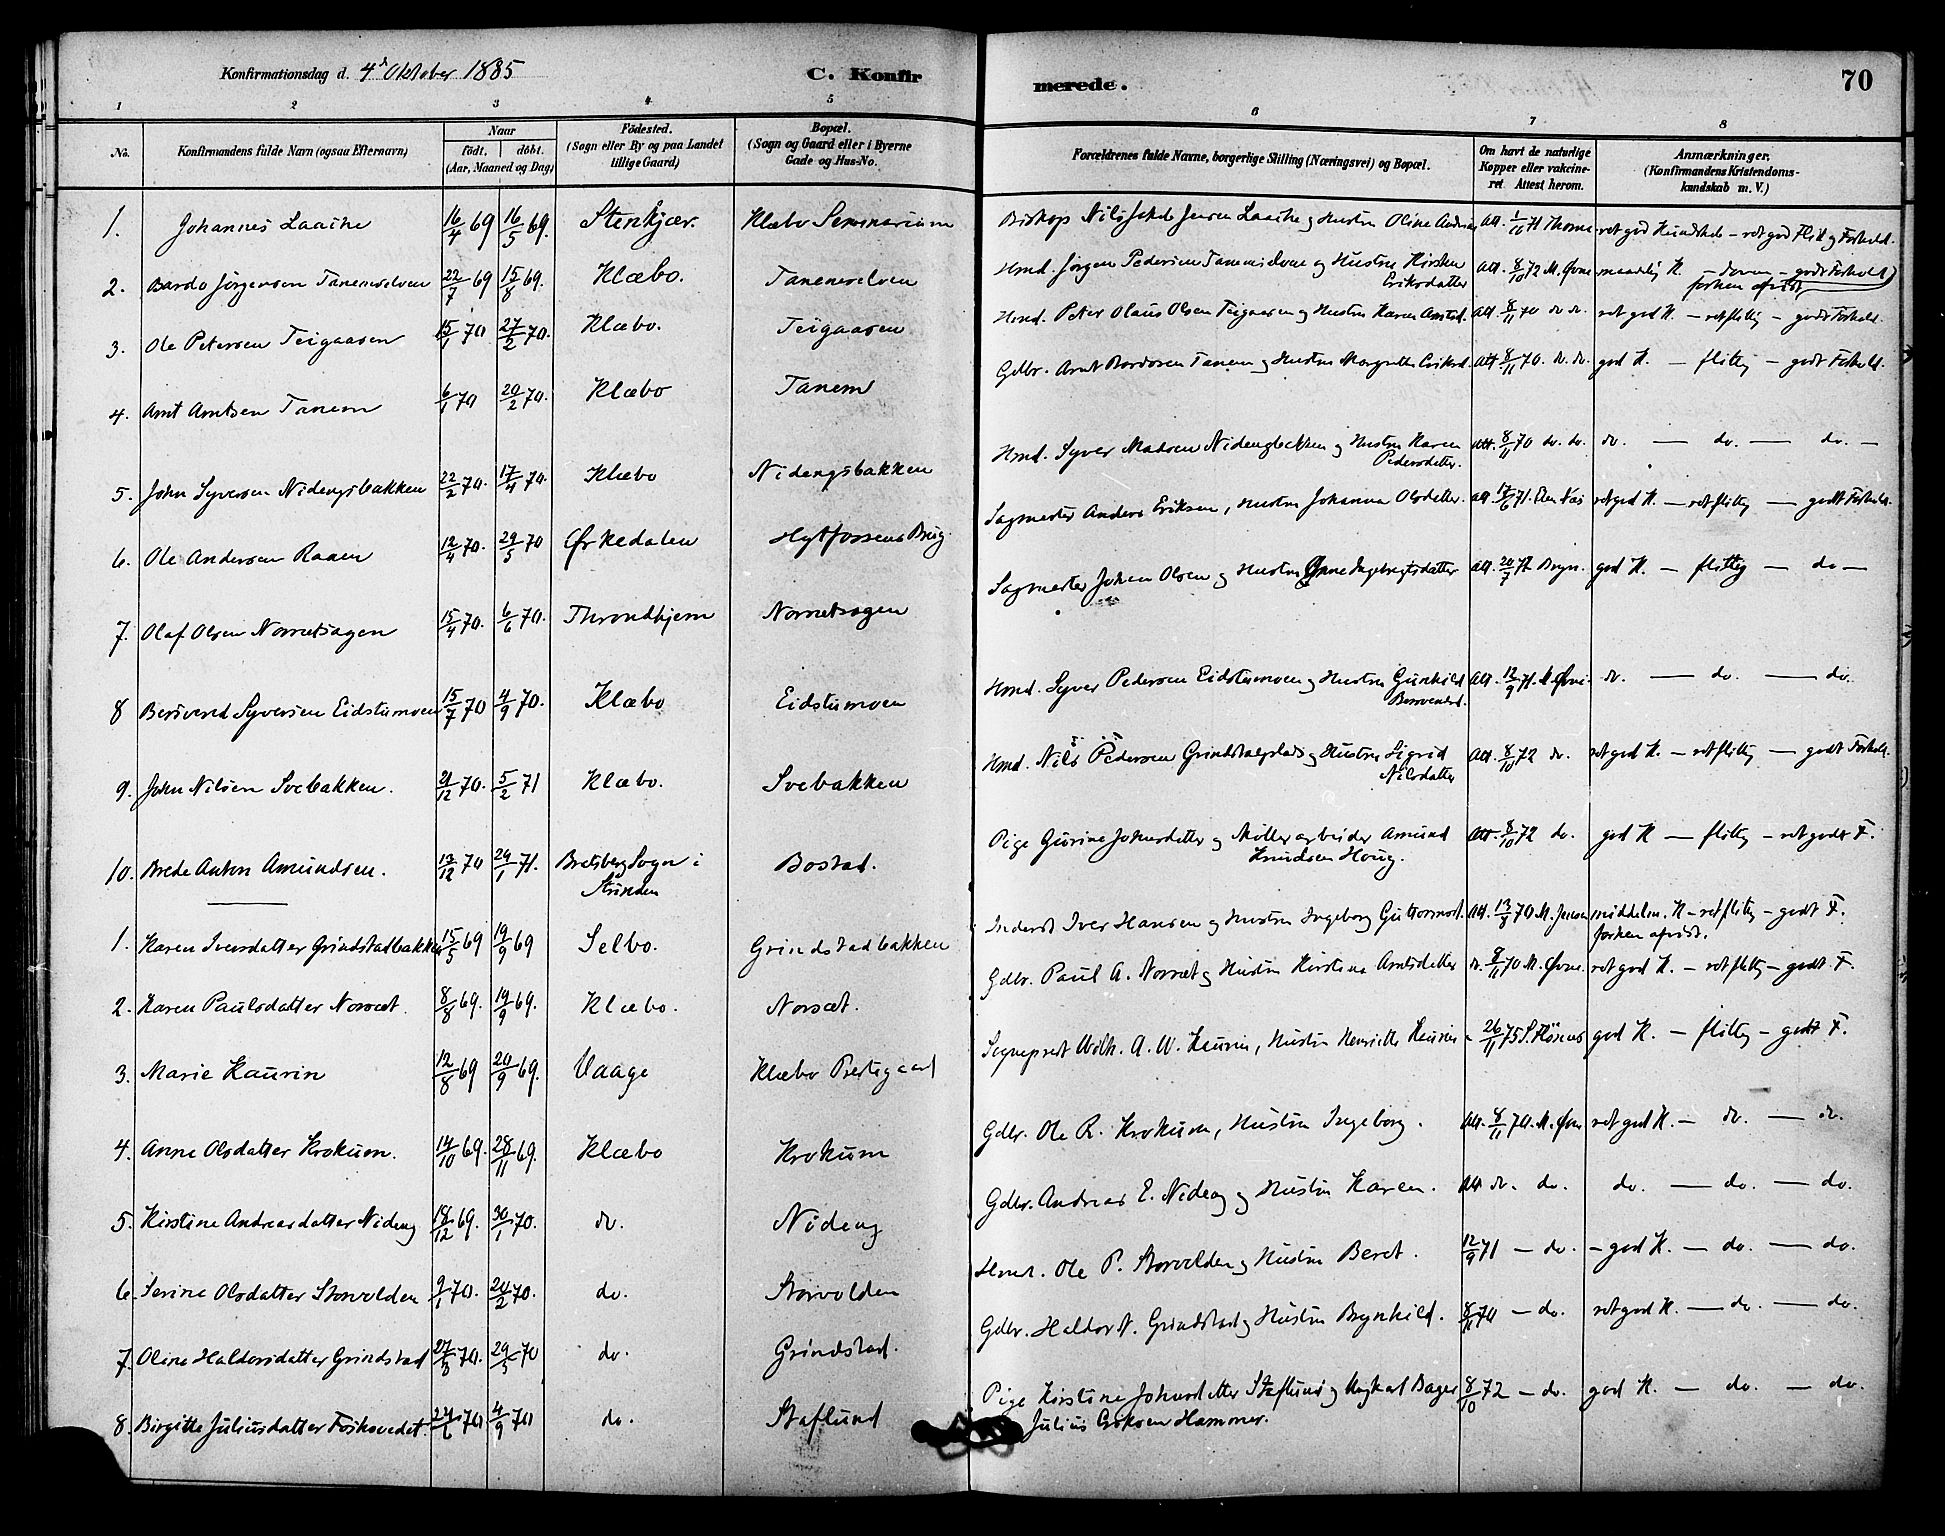 Konfirmationsdag d. 4de Oktober 1885
C. Konfirmerede.
70
1 2 3 4 5 6 7 8
No.
Konfirmandens fulde Navn (ogsaa Efternavn)
Naar
födt, döbt.
(Aar, Maaned og Dag)
Födested.
(Sogn eller By og paa Landet
tillige Gaard)
Bopæl.
(Sogn og Gaard eller i Byerne
Gade og Hus-No.
Forældrenes fulde Navne, borgerlige Stilling (Næringsvei) og Bopæl.
Om havt de naturlige
Kopper eller vakcine-
ret Attest herom.
Anmærkninger.
(Konfirmandens Kristendoms-
kundskab m. V.)
1. Johannes Laache 16/4 69 16/5 69. Stenkjær. Klæbo Seminarium Biskop Nils Jakob Jensen Laache og Hustru Oline Att. 1/10 71 Thome ret god Kundskab – ret god Flid og Forhold.
2. Bardo Jørgensen Tanemselven 22/7 69 15/8 69. Klæbo. Tanemselven Hmd. Jørgen Pedersen Tanemselven og Hustru Kirsten Eriksdatter Att. 8/10 72 M. Øvne maadelig K. – – godt Forhold
forhen afvist
3. Ole Petersen Teigaasen 15/1 70 27/2 70. Klæbo. Teigaasen Hmd. Peter Olaus Olsen Teigaasen og Hustru Karen Arntsd. Att. 8/11 70 do do. ret god K. – ret flittig – godt Forhold.
4. Arnt Arntsen Tanem 6/1 70 20/2 70. Klæbo Tanem Gdbr. Arnt Bardosen Tanem og Hustru Margrethe Eriksd. Att 8/11 70. do. do. god K. – flittig – godt Forhold.
5. John Syversen Nidengsbakken 22/2 70. 17/4 70. Klæbo Nidengsbakken Hmd. Syver Madsen Nidengbakken og Hustru Karen Pedersdatter. Att. 8/11 70 do. do. do. – do. – do. –
6. Ole Andersen Raaen 12/4 70. 29/5 70 Ørkedalen Hytfossens Brug Sagmester Anders Eriksen, Hustru Johanna Olsdatter. Att. 17/6 71. ret god K. – ret flittig – godt Forhold.
7. Olaf Olsen Norsætsagen 15/4 70. 6/6 70. Throndhjem Norsætsagen Sagmester Johan Olsen og Hustru Anne Ingebrigtsdatter Att. 20/7 71 Bryn. god K. – flittig – do –
8 Bersvend Syversen Eidstumoen 15/7 70 4/9 70. Klæbo Eidstumoen Hmd. Syver Pedersen Eidstumoen og Hustru Gunhild Bersvendsd. Att. 12/9 71. M. Øvne do. – do. – do.
9. John Nilsen Svebakken. 21/12 70. 5/2 71 Klæbo. Svebakken Hmd. Nils Pedersen Grindstadplads og Hustru Sigrid Nilsdatter Att. 8/10 72 do. ret god K. – ret flittig – godt Forhold.
10. Brede Anton Amundsen. 13/12 70 29/1 71. Bratsberg Sogn i Strinden Bostad. Pige Gurine Johnsdatter og Møllearbeider Amund Knudsen Houg. Att. 8/10 72 do. god K – flittig – ret godt F.
1. Karen Iversdatter Grindstadbakken 15/5 69 19/9 69 Selbo. Grindstadbakken Inderst Iver Hansen og Hustru Ingeborg Guttormsd. Att. 13/8 70 M. Jensen middelm. K – ret flittig – godt F.
forhen afvist.
2. Karen Paulsdatter Norsæt. 8/8 69. 19/9 69. Klæbo. Norsæt. Gdbr. Paul A. Norsæt og Hustru Kirstine Arntsdatter do. 8/11 70 M. Øvne. ret god K. – ret flittig – godt F.
3. Marie Kaurin 12/8 69 20/9 69. Vaage Klæbo Prestegaard Sogneprest Wilh. A. W. Kaurin, Hustru Henriette Kaurin – 26/11 75 god K. – flittig – godt F.
4. Anne Olsdatter Krokum. 14/10 69. 28/11 69. Klæbo Krokum Gdbr. Ole R. Krokum, Hustru Ingeborg. Att. 8/11 70. M. Øvne ret god K. – do. – do.
5. Kirstine Andreasdatter Nideng 18/12 69. 30/1 70. do. Nideng Gdbr. Andreas E. Nideng og Hustru Karen. Att do. do. do. – do. – do.
6. Serine Olsdatter Storvolden 9/1 70. 20/2 70. do. Storvolden Hmd. Ole P. Storvolden og Hustru Beret. 12/9 71 – do. – god K. – do. – do.
7. Oline Haldorsdatter Grindstad 27/3 70. 29/5 70 do. Grindstad. Gdbr. Haldor A. Grindstad og Hustru Brynhild. 8/11 70 – do. ret god K. – do. – do.
8. Birgitte Juliusdatter Foskvedet. 24/6 70 4/9 70 do. Staflund Pige Kirstine Johnsdatter Staflund og Ungkarl Bager Julius Eriksen Hammer. 8/10 72 – do. god K. – do. – do.